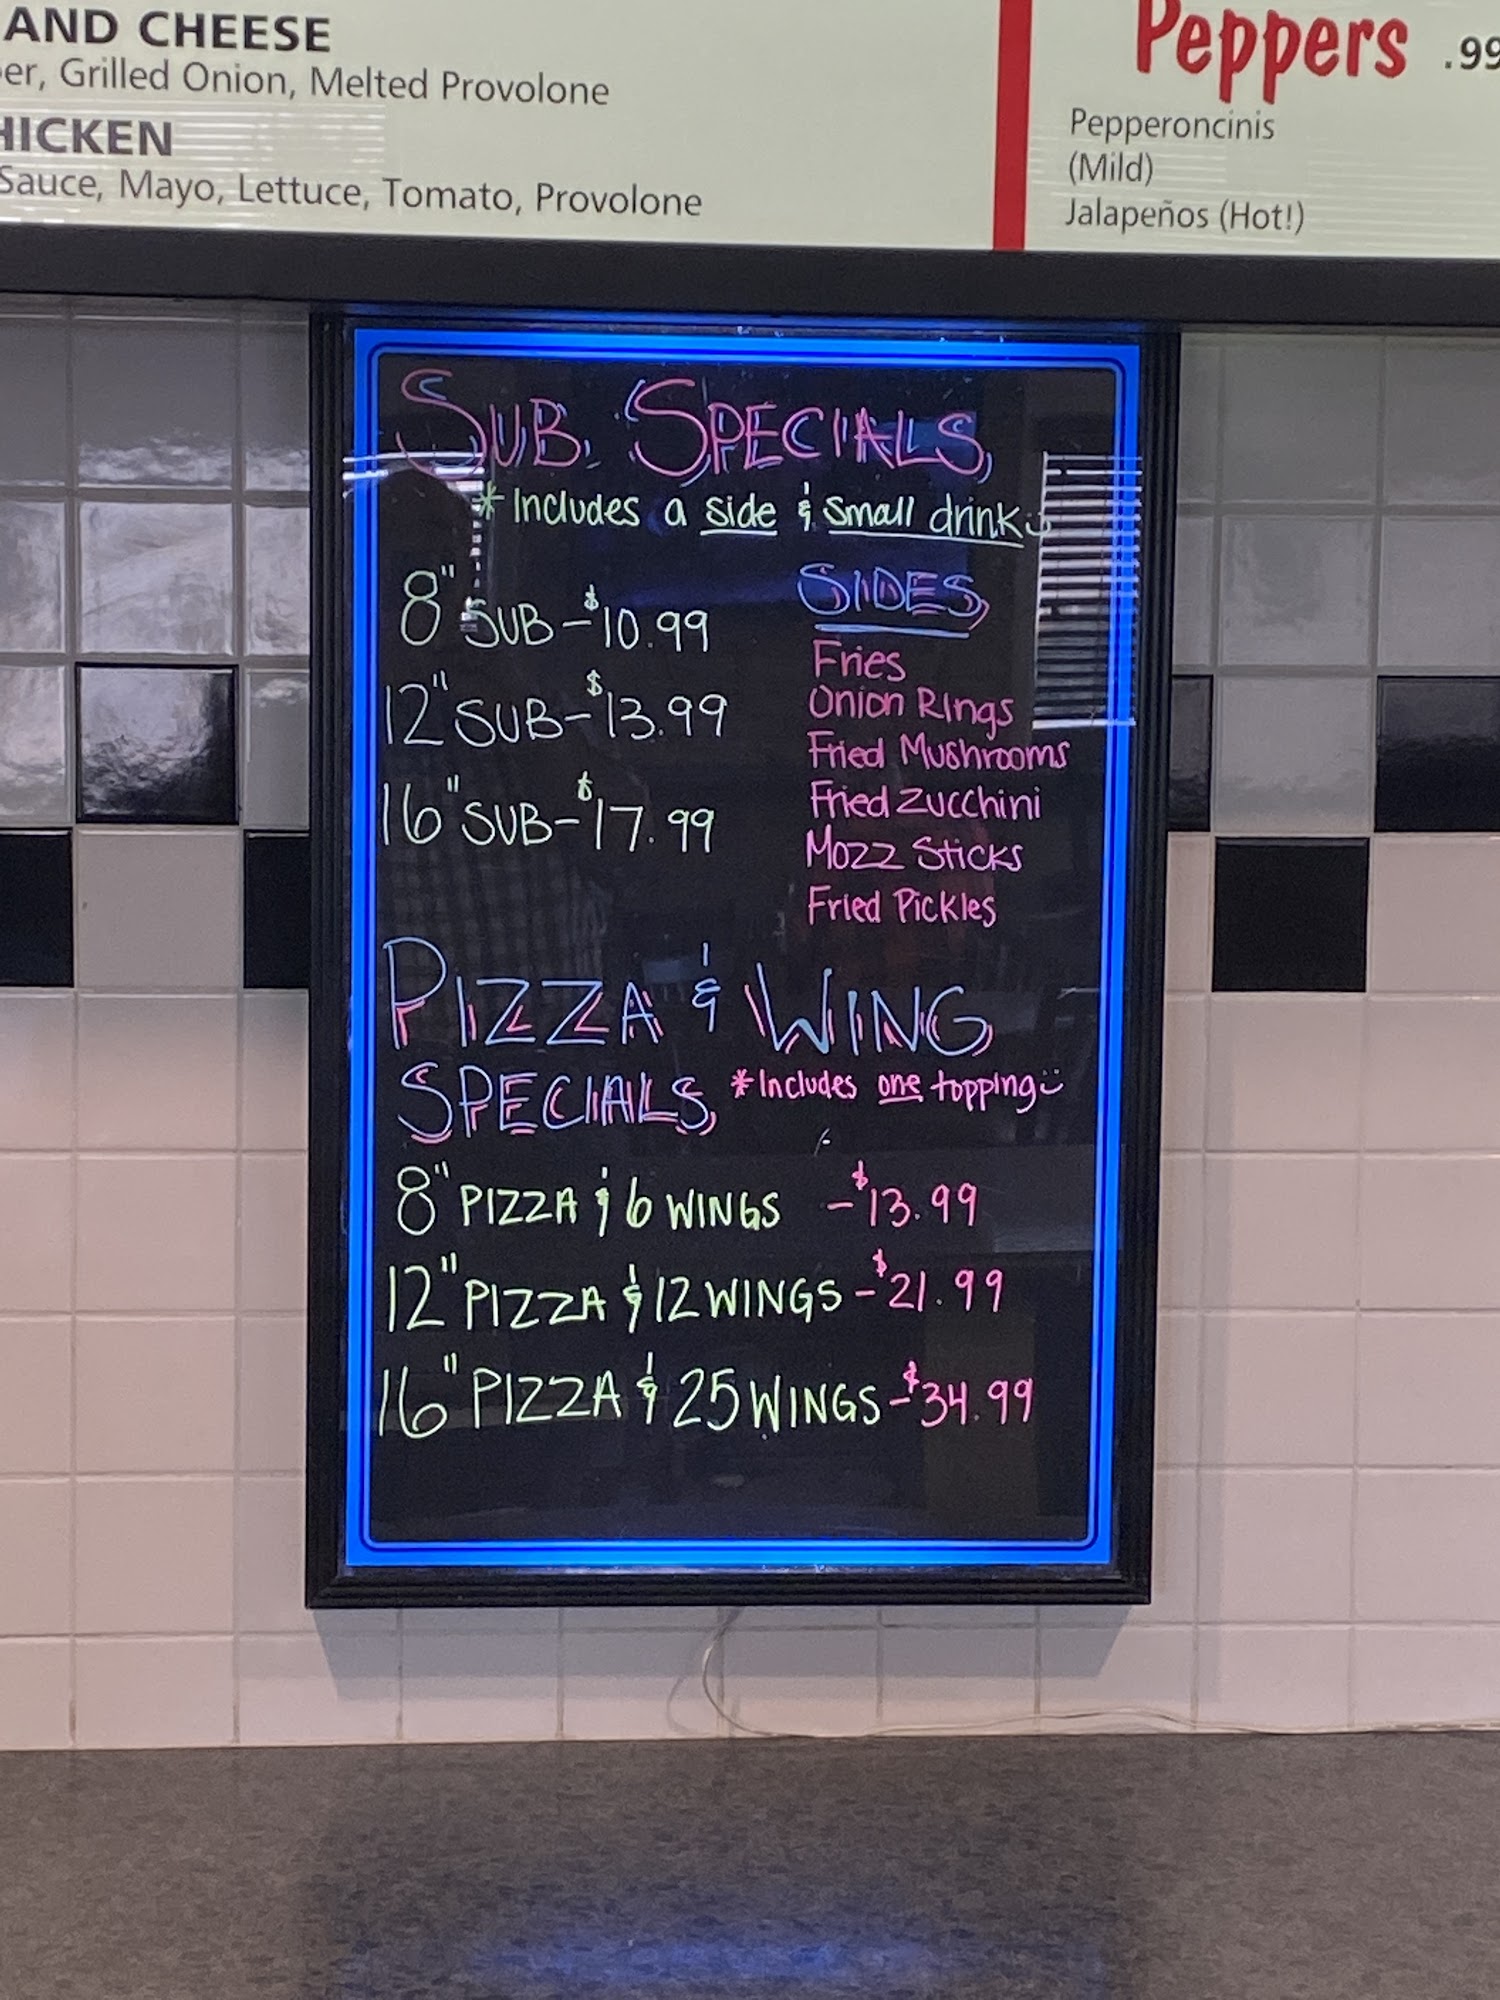 AND CHEESE
er, Grilled Onion, Melted Provolone
HICKEN
Sauce, Mayo, Lettuce, Tomato, Provolone
Peppers .99
Pepperoncinis
(Mild)
Jalapeños (Hot!)
SUB SPECIALS
*Includes a side & small drink
8" SUB - $10.99
12" SUB - $13.99
16" SUB - $17.99
SIDES
Fries
Onion Rings
Fried Mushrooms
Fried Zucchini
Mozz Sticks
Fried Pickles
PIZZA & WING
SPECIALS *Includes one topping
8" PIZZA & 6 WINGS - $13.99
12" PIZZA & 12 WINGS - $21.99
16" PIZZA & 25 WINGS - $34.99